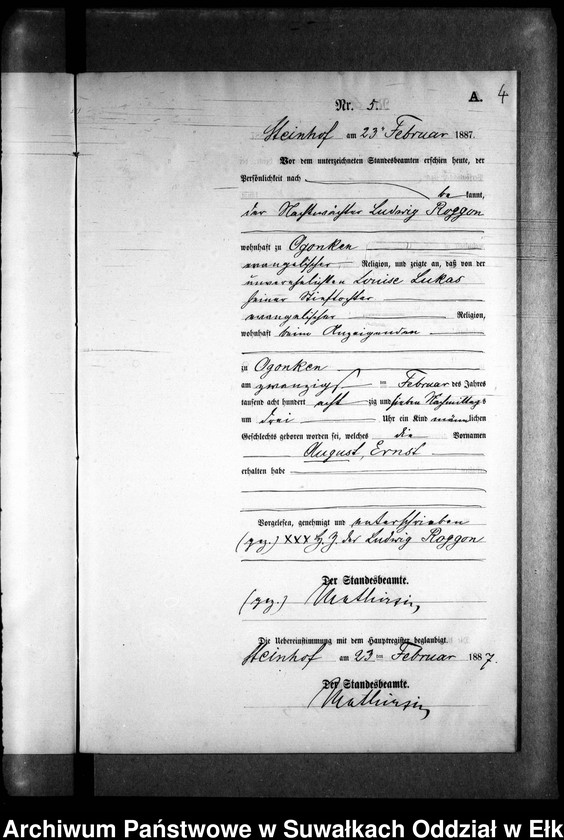 A. 4
Nr. 5.
Steinhof am 23ten Februar 1887.
Vor dem unterzeichneten Standesbeamten erschien heute, der
Persönlichkeit nach
be kannt,
der Nachtwächter Ludwig Roggon
wohnhaft zu Ogonken
evangelischer Religion, und zeigte an, daß von der
unverehelichten Louise Lukas
seiner Stieftochter
evangelischer Religion,
wohnhaft beim Anzeigenden
zu Ogonken
am zwanzigst en Februar des Jahres
tausend acht hundert acht zig und sieben Nachmittags
um drei Uhr ein Kind männ lichen
Geschlechts geboren worden sei, welches die Vornamen
August, Ernst
erhalten habe
Vorgelesen, genehmigt und unterschrieben
(gez.) XXX H. Z. des Ludwig Roggon
Der Standesbeamte.
(gez.)
Die Uebereinstimmung mit dem Hauptregister beglaubigt.
Steinhof am 23ten Februar 1887.
Der Standesbeamte.
Archiwum Państwowe w Suwałkach Oddział w Ełk